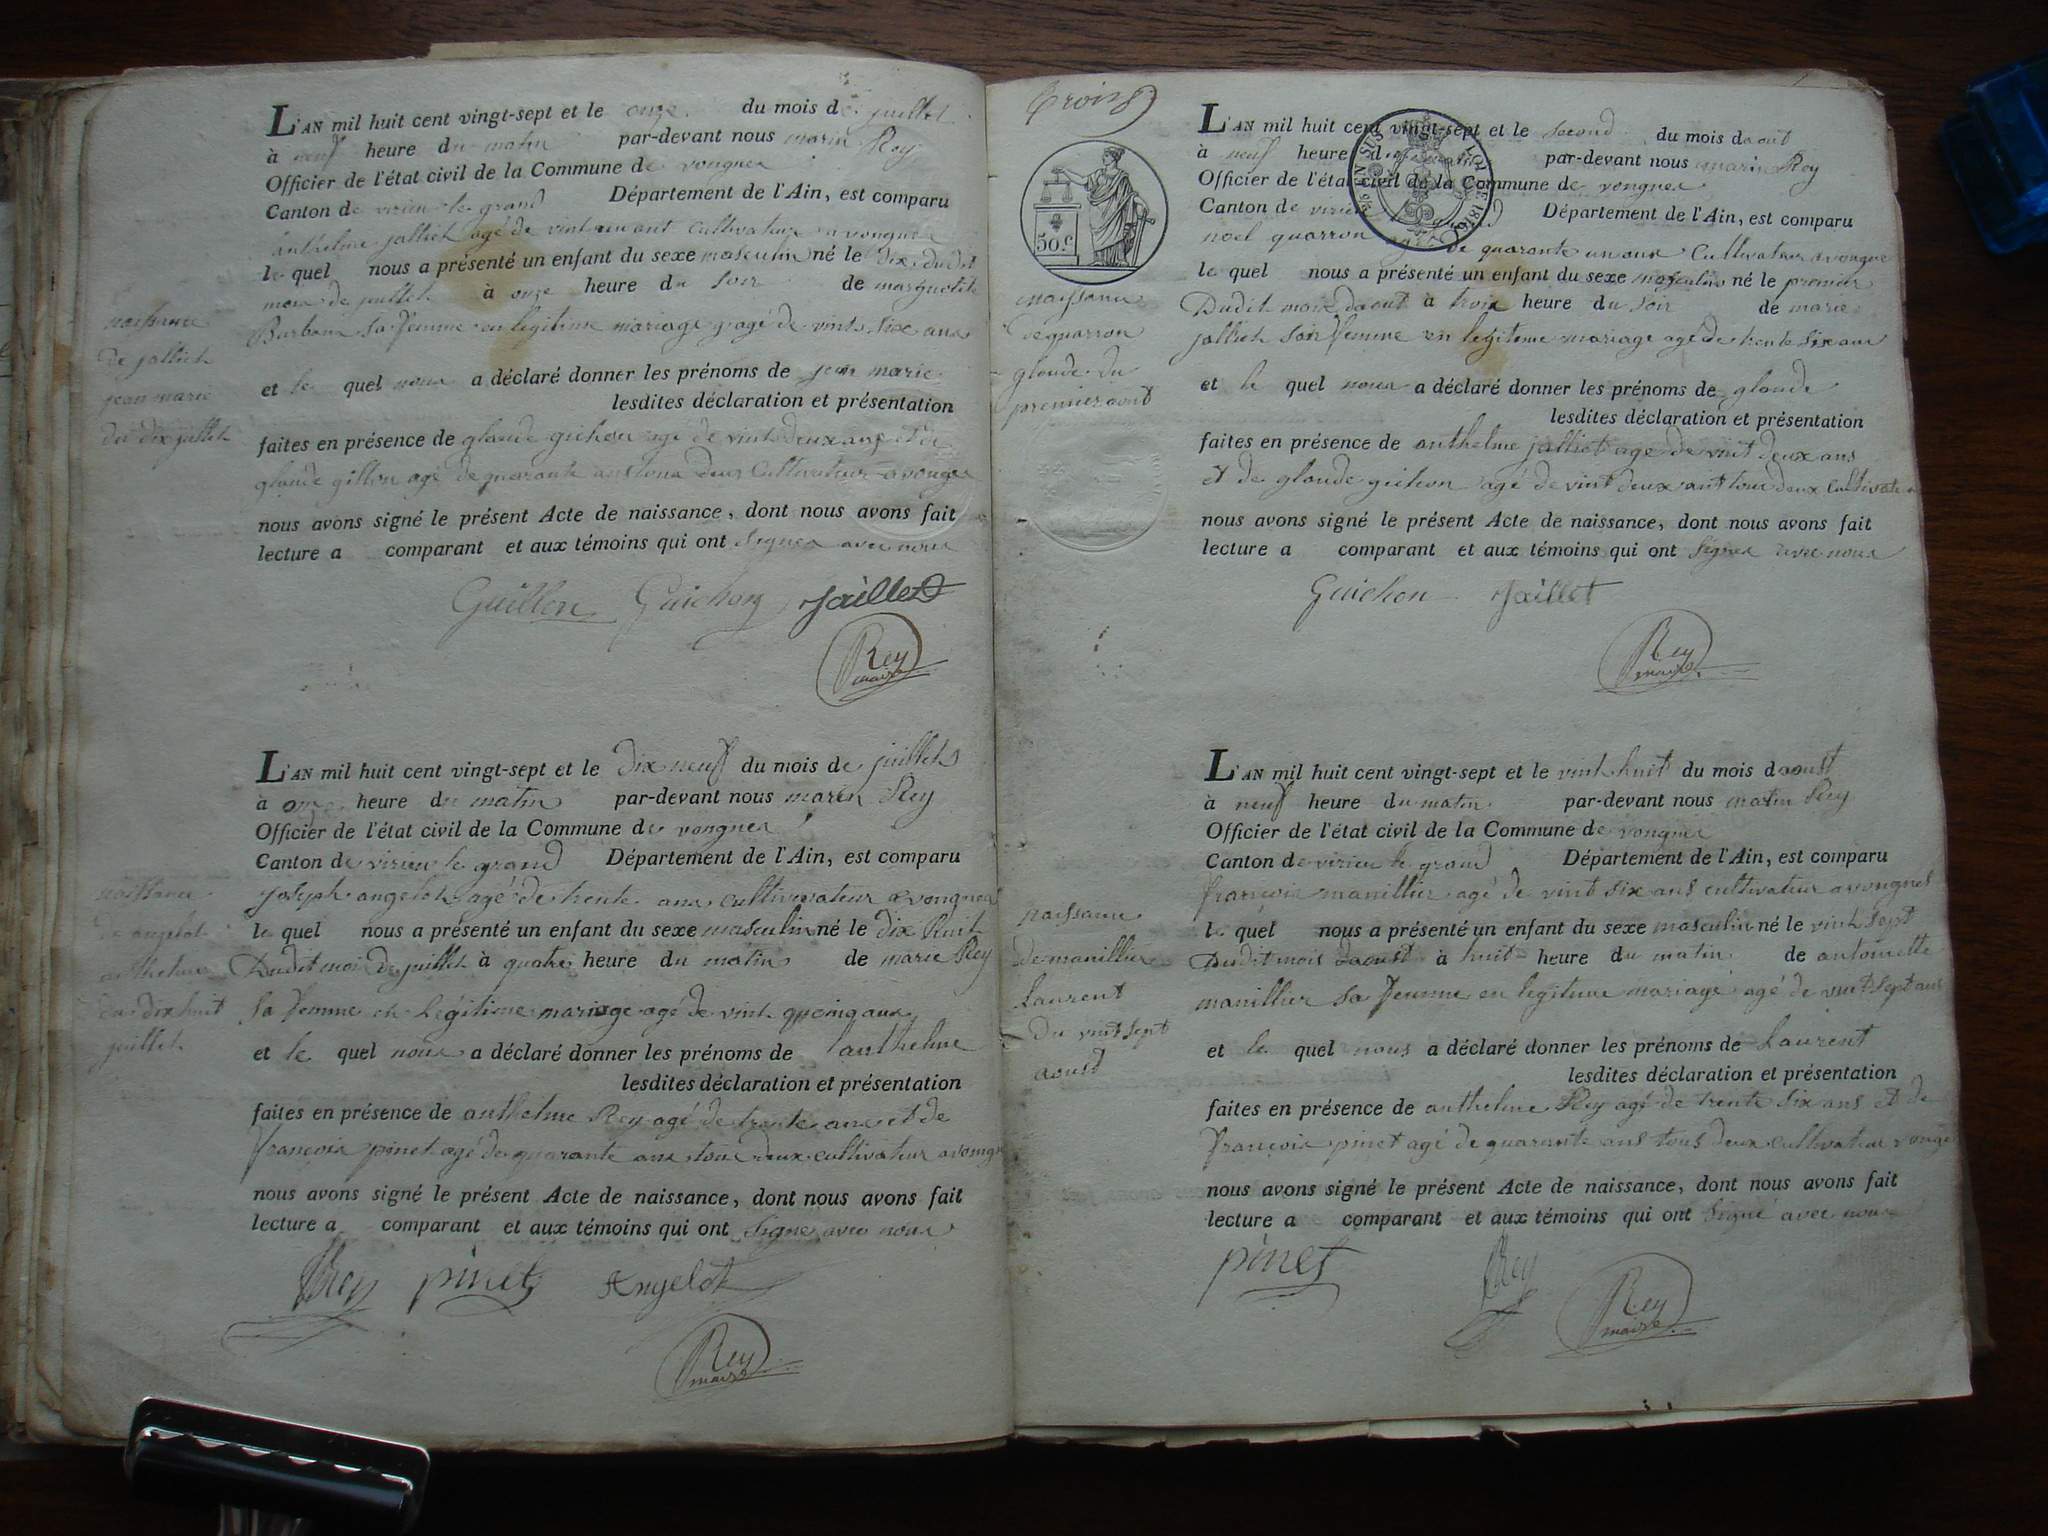 L'AN mil huit cent vingt-sept et le onze du mois de juillet
à neuf heure du matin par-devant nous marin Rey
Officier de l'état civil de la Commune de vongnes
Canton de virieu le grand Département de l'Ain, est comparu
anthelme jalliet agé de vint un ant cultivateur a vongnes
le quel nous a présenté un enfant du sexe masculin né le dix dudit
mois de juillet à onze heure du soir de
Burban sa femme en legitime mariage agé de vint six ans
et le quel nous a déclaré donner les prénoms de jean marie
lesdites déclaration et présentation
faites en présence de glaude gichon agé de vint deux ans et de
glaude gillon agé de quarante ans tous deux cultivateur a vongne
nous avons signé le présent Acte de naissance, dont nous avons fait
lecture a comparant et aux témoins qui ont signes avec nous
naissance
de jalliet
jean marie
du dix juillet
Guillon Guichon Jaillet
Rey
maire
L'AN mil huit cent vingt-sept et le dix neuf du mois de juillet
à onze heure du matin par-devant nous marin Rey
Officier de l'état civil de la Commune de vongnes
Canton de virieu le grand Département de l'Ain, est comparu
joseph angelot agé de trente ans cultivateur a vongnes
le quel nous a présenté un enfant du sexe masculin né le dix huit
Dudit mois de juillet à quatre heure du matin de marie Rey
sa femme en légitime mariage agé de vint
et le quel nous a déclaré donner les prénoms de anthelme
lesdites déclaration et présentation
faites en présence de anthelme Rey agé de trente ans et de
françois pinet agé de quarante ans tous deux cultivateur a vongne
nous avons signé le présent Acte de naissance, dont nous avons fait
lecture a comparant et aux témoins qui ont signe avec nous
naissance
de angelot
anthelme
du dix huit
juillet
Rey pinet Angelot
Rey
maire
trois
50 c
EN SUS LOI DE 1816
L'AN mil huit cent vingt-sept et le second du mois daout
à neuf heure du matin par-devant nous marin Rey
Officier de l'état civil de la Commune de vongnes
Canton de virieu le grand Département de l'Ain, est comparu
noel quarron agé de quarante un ans cultivateur a vongne
le quel nous a présenté un enfant du sexe masculin né le premier
Dudit mois daout à trois heure du soir de marie
jalliet son femme en legitime mariage agé de trente six ans
et le quel nous a déclaré donner les prénoms de glaude
lesdites déclaration et présentation
faites en présence de anthelme jalliet agé de vint deux ans
et de glaude gichon agé de vint deux ant tous deux cultivateur
nous avons signé le présent Acte de naissance, dont nous avons fait
lecture a comparant et aux témoins qui ont signes avec nous
naissance
de quarron
glaude du
premier aout
Guichon Jaillet
Rey
maire
L'AN mil huit cent vingt-sept et le vint huit du mois daoust
à neuf heure du matin par-devant nous marin Rey
Officier de l'état civil de la Commune de vongnes
Canton de virieu le grand Département de l'Ain, est comparu
françois manillier agé de vint six ans cultivateur a vongnes
le quel nous a présenté un enfant du sexe masculin né le vint sept
Dudit mois daoust à huit heure du matin de antoinette
manillier sa femme en legitime mariage agé de vint sept ans
et le quel nous a déclaré donner les prénoms de Laurent
lesdites déclaration et présentation
faites en présence de anthelme Rey agé de trente six ans et de
françois pinet agé de quarante ans tous deux cultivateur vongne
nous avons signé le présent Acte de naissance, dont nous avons fait
lecture a comparant et aux témoins qui ont signé avec nous
naissance
de manillier
Laurent
du vint sept
aoust
pinet Rey
Rey
maire